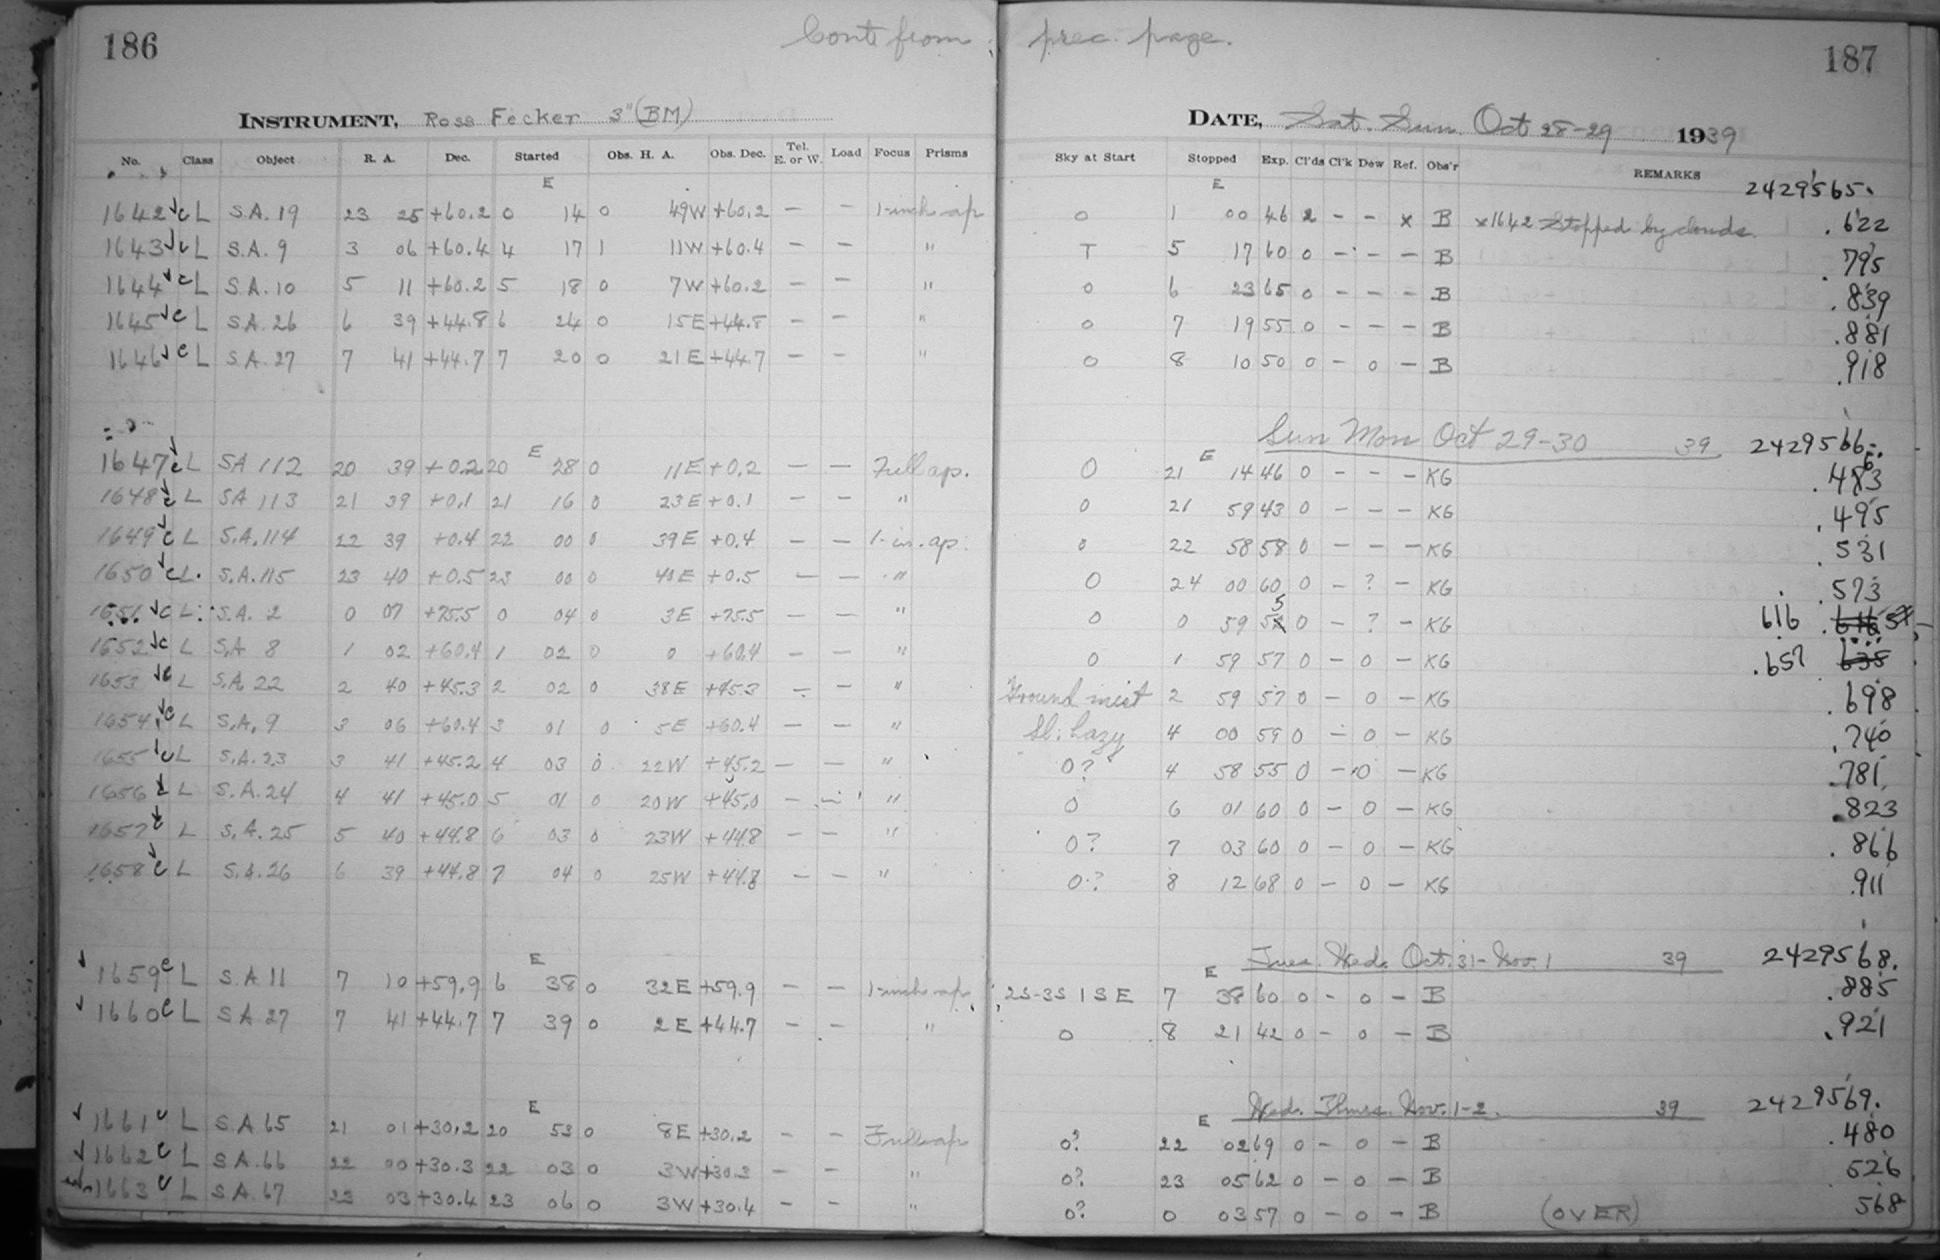 186
Cont from prec. page.
187
INSTRUMENT, Ross Fecker 3" (BM)
DATE, Sat. Sun. Oct 28-29 1939
No. Class Object R. A. Dec. Started Obs. H. A. Obs. Dec. Tel. E. or W. Load Focus Prisms Sky at Start Stopped Exp. Cl'ds Cl'k Dew Ref. Obs'r REMARKS
E E 2429565.
1642 c L S.A. 19 23 25 +60.2 0 14 0 49W +60.2 — — 1-inch ap 0 1 00 46 2 - - x B x1642 Stopped by clouds. .622
1643 c L S.A. 9 3 06 +60.4 4 17 1 11W +60.4 — — " T 5 17 60 0 - - - B .795
1644 c L S.A. 10 5 11 +60.2 5 18 0 7W +60.2 — — " 0 6 23 65 0 - - - B .839
1645 c L S.A. 26 6 39 +44.8 6 24 0 15E +44.8 — — " 0 7 19 55 0 - - - B .881
1646 c L S.A. 27 7 41 +44.7 7 20 0 21E +44.7 — — " 0 8 10 50 0 - 0 - B .918
Sun Mon Oct 29-30 39 2429566.
E E
1647 c L SA 112 20 39 +0.2 20 28 0 11E +0.2 — — Full ap. 0 21 14 46 0 - - - KG
1648 c L SA 113 21 39 +0.1 21 16 0 23E +0.1 — — " 0 21 59 43 0 - - - KG .495
1649 c L S.A. 114 22 39 +0.4 22 00 0 39E +0.4 — — 1-in. ap. 0 22 58 58 0 - - - KG .531
1650 c L. S.A. 115 23 40 +0.5 23 00 0 40E +0.5 — — " 0 24 00 60 0 - ? - KG .573
1651 c L S.A. 2 0 07 +75.5 0 04 0 3E +75.5 — — " 0 0 59 55 0 - ? - KG 616
1652 c L S.A. 8 1 02 +60.4 1 02 0 0 +60.4 — — " 0 1 59 57 0 - 0 - KG .657 635
1653 c L S.A. 22 2 40 +45.3 2 02 0 38E +45.3 — — " Ground mist 2 59 57 0 - 0 - KG .698
1654 c L S.A. 9 3 06 +60.4 3 01 0 5E +60.4 — — " Sl. hazy 4 00 59 0 - 0 - KG .740
1655 c L S.A. 23 3 41 +45.2 4 03 0 22W +45.2 — — " 0? 4 58 55 0 - 0 - KG .781
1656 c L S.A. 24 4 41 +45.0 5 01 0 20W +45.0 — — " 0 6 01 60 0 - 0 - KG .823
1657 c L S.A. 25 5 40 +44.8 6 03 0 23W +44.8 — — " 0? 7 03 60 0 - 0 - KG .866
1658 c L S.A. 26 6 39 +44.8 7 04 0 25W +44.8 — — " 0? 8 12 68 0 - 0 - KG .911
Tues. Wed. Oct. 31-Nov. 1 39 2429568.
E E
1659 c L S.A 11 7 10 +59.9 6 38 0 32E +59.9 — — 1-inch ap 2S-3S 1 S E 7 38 60 0 - 0 - B .885
1660 c L S.A 27 7 41 +44.7 7 39 0 2E +44.7 — — " 0 8 21 42 0 - 0 - B .921
Wed. Thurs. Nov. 1-2. 39 2429569.
E E
1661 c L S.A 65 21 01 +30.2 20 53 0 8E +30.2 — — Full ap 0? 22 02 69 0 - 0 - B .480
1662 c L S.A. 66 22 00 +30.3 22 03 0 3W +30.3 — — " 0? 23 05 62 0 - 0 - B 526
1663 c L S.A. 67 23 03 +30.4 23 06 0 3W +30.4 — — " 0? 0 03 57 0 - 0 - B (OVER) 568